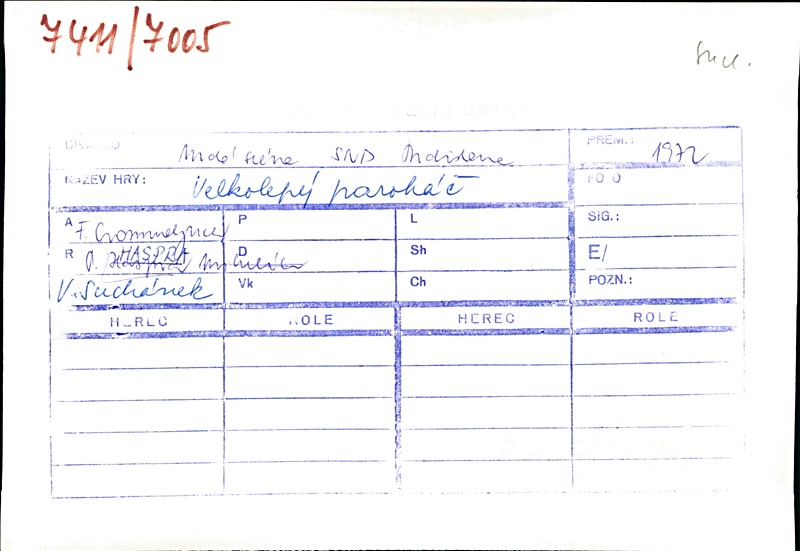 7411/7005
DIVADLO Malá scéna SND PREM.: 1972
NÁZEV HRY: Velkolepý paroháč FOTO
A F. Crommelynck P L SIG.:
R P. HASPRA D Sh E/
V. Suchánek Vk Ch POZN.:
HEREC ROLE HEREC ROLE